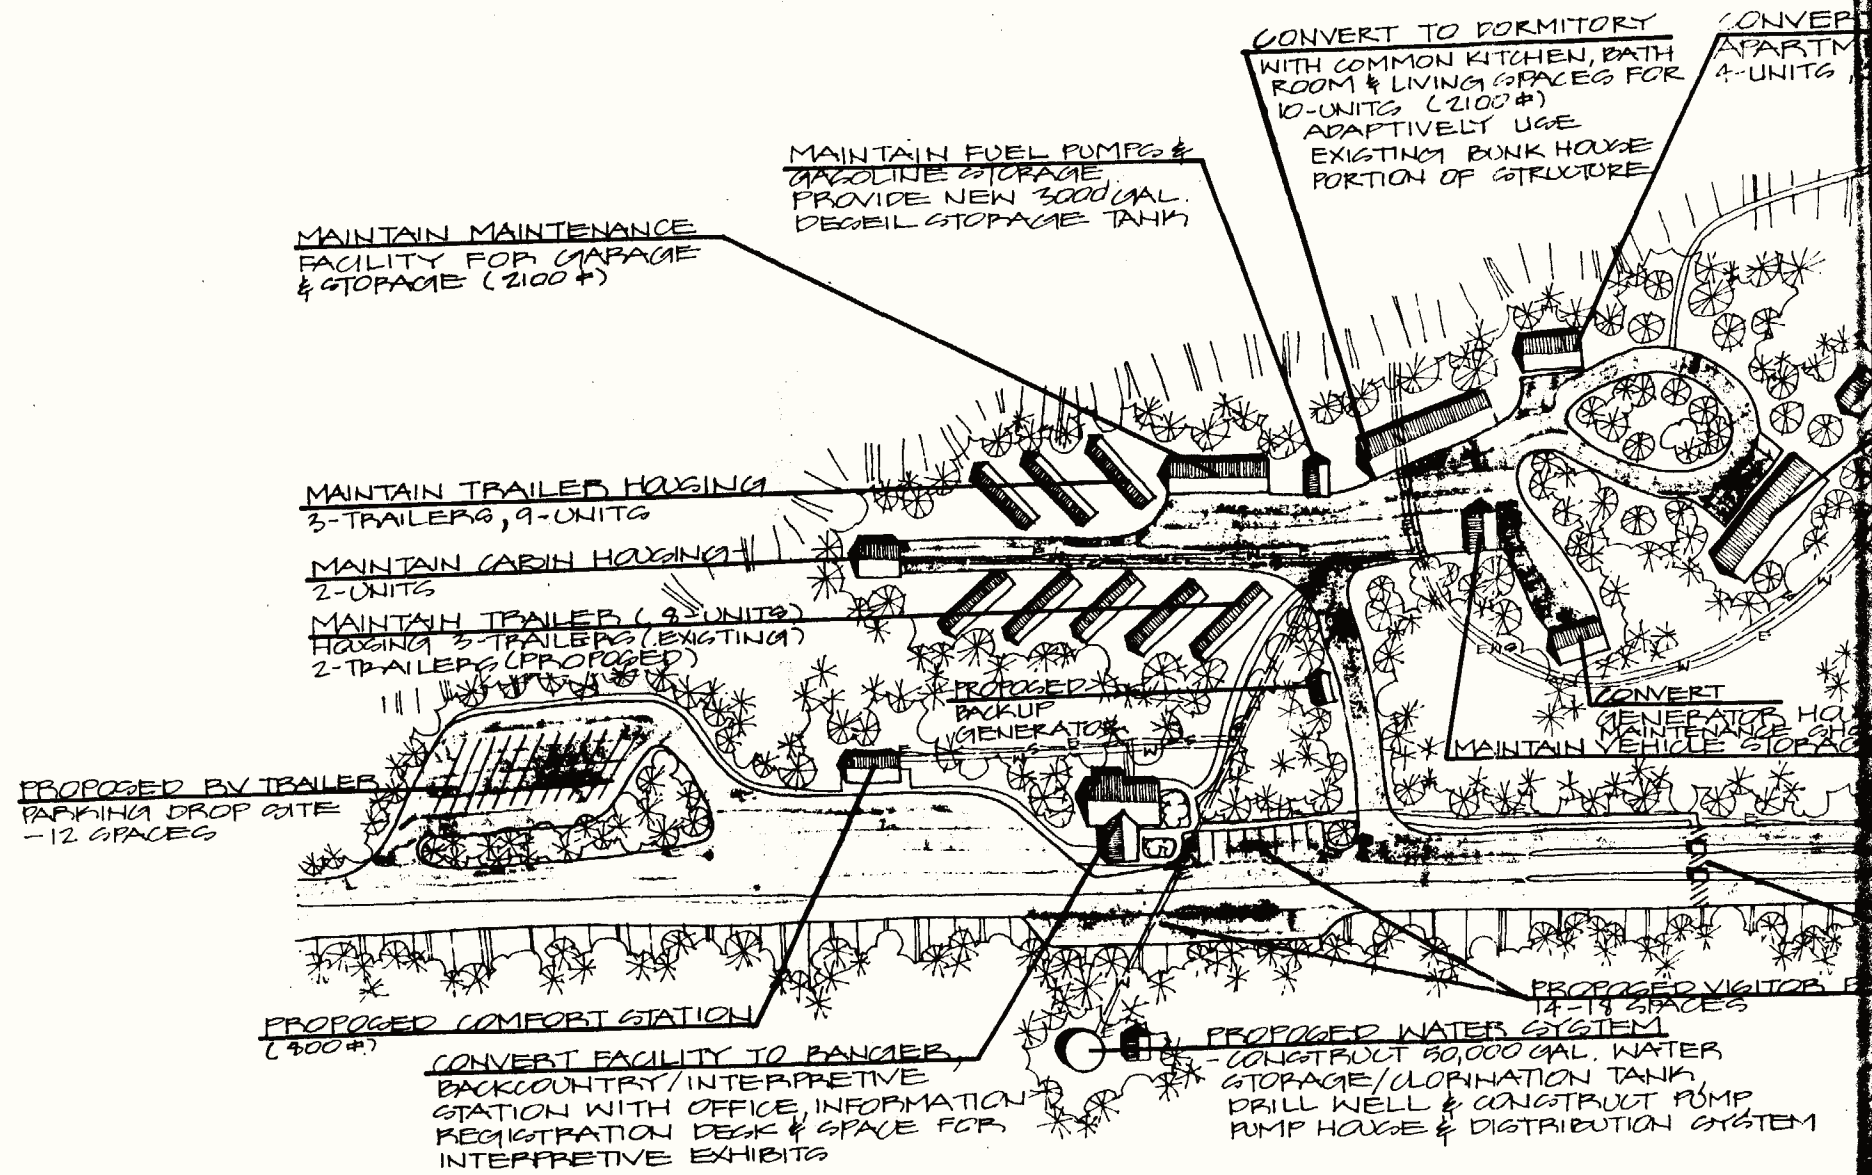 CONVERT TO DORMITORY
WITH COMMON KITCHEN, BATH
ROOM & LIVING SPACES FOR
10-UNITS (2100#)
ADAPTIVELY USE
EXISTING BUNK HOUSE
PORTION OF STRUCTURE
CONVER
APARTM
4-UNITS,
MAINTAIN FUEL PUMPS &
GASOLINE STORAGE.
PROVIDE NEW 3000 GAL.
DEGEIL STORAGE TANK
MAINTAIN MAINTENANCE
FACILITY FOR GARAGE
& STORAGE (2100#)
MAINTAIN TRAILER HOUSING
3-TRAILERS, 9-UNITS
MAINTAIN CABIN HOUSING
2-UNITS
MAINTAIN TRAILER ( 8-UNITS)
HOUSING 3-TRAILERS (EXISTING)
2-TRAILERS (PROPOSED)
PROPOSED
BACKUP
GENERATOR
CONVERT
GENERATOR HOU
MAINTENANCE SHO
MAINTAIN VEHICLE STORAG
PROPOSED RV TRAILER
PARKING DROP SITE
-12 SPACES
PROPOSED VISITOR P
14-18 SPACES
PROPOSED COMFORT STATION
(800#)
CONVERT FACILITY TO RANGER,
BACKCOUNTRY/INTERPRETIVE
STATION WITH OFFICE, INFORMATION
REGISTRATION DESK & SPACE FOR
INTERPRETIVE EXHIBITS
PROPOSED WATER SYSTEM
- CONSTRUCT 50,000 GAL. WATER
STORAGE/CLORINATION TANK,
DRILL WELL & CONSTRUCT PUMP,
PUMP HOUSE & DISTRIBUTION SYSTEM